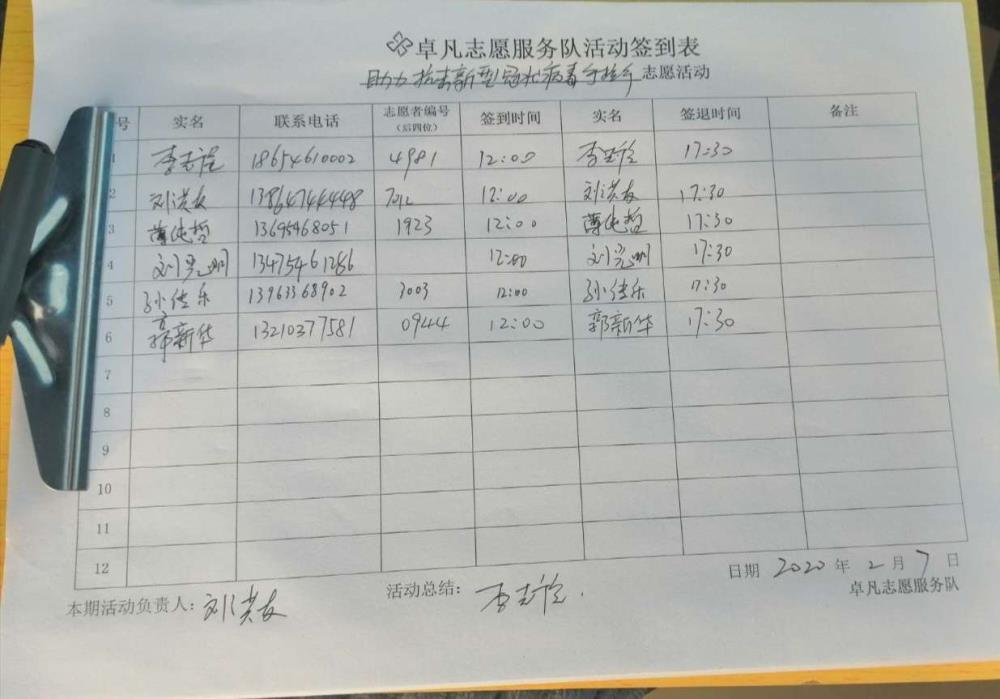 卓凡志愿服务队活动签到表
助力抗击新型冠状病毒 志愿活动
号 实名 联系电话 志愿者编号（后四位） 签到时间 实名 签退时间 备注
1 李志 18654610002 4981 12:00 李 17:30
2 刘洪友 13864744448 7012 12:00 刘洪友 17:30
3 薄纯哲 13695468051 1923 12:00 薄纯哲 17:30
4 刘光明 13475461286 12:00 刘光明 17:30
5 孙佳乐 13963368902 3003 12:00 孙佳乐 17:30
6 郭新华 13210377581 0944 12:00 郭新华 17:30
7
8
9
10
11
12
日期 2020 年 2 月 7 日
本期活动负责人：刘洪友 活动总结： 李志
卓凡志愿服务队